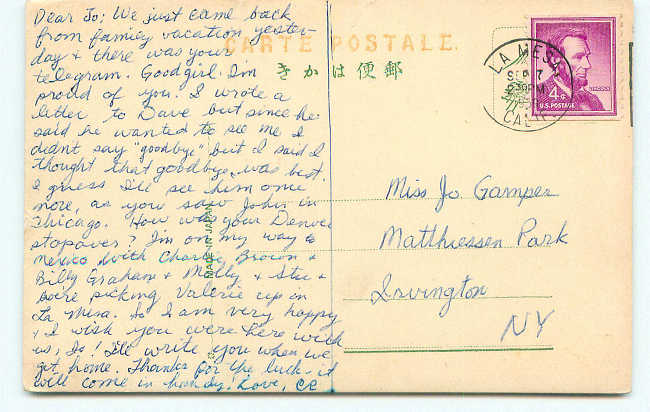 Dear Jo; We just came back
from family vacation yester-
day & there was your
telegram. Good girl. I'm
proud of you. I wrote a
letter to Dave but since he
said he wanted to see me I
didn't say "goodbye" but I said I
thought that goodbye was best.
I guess I'll see him once
more, as you saw John in
Chicago. How was your Denver
stopover? I'm on my way to
Mexico with Charlie Brown &
Billy Graham & Molly & Stu &
we're picking Valerie up on
La Mesa. So I am very happy
& I wish you were here with
us, Jo! I'll write you when we
get home. Thanks for the luck - it
will come in handy! Love, CC
CARTE POSTALE.
きかは便郵
MADE IN JAPAN
LA MESA
SEP 7
230PM
CALIF
4¢
LINCOLN
U.S. POSTAGE
Miss Jo Gamper
Matthiessen Park
Irvington
NY